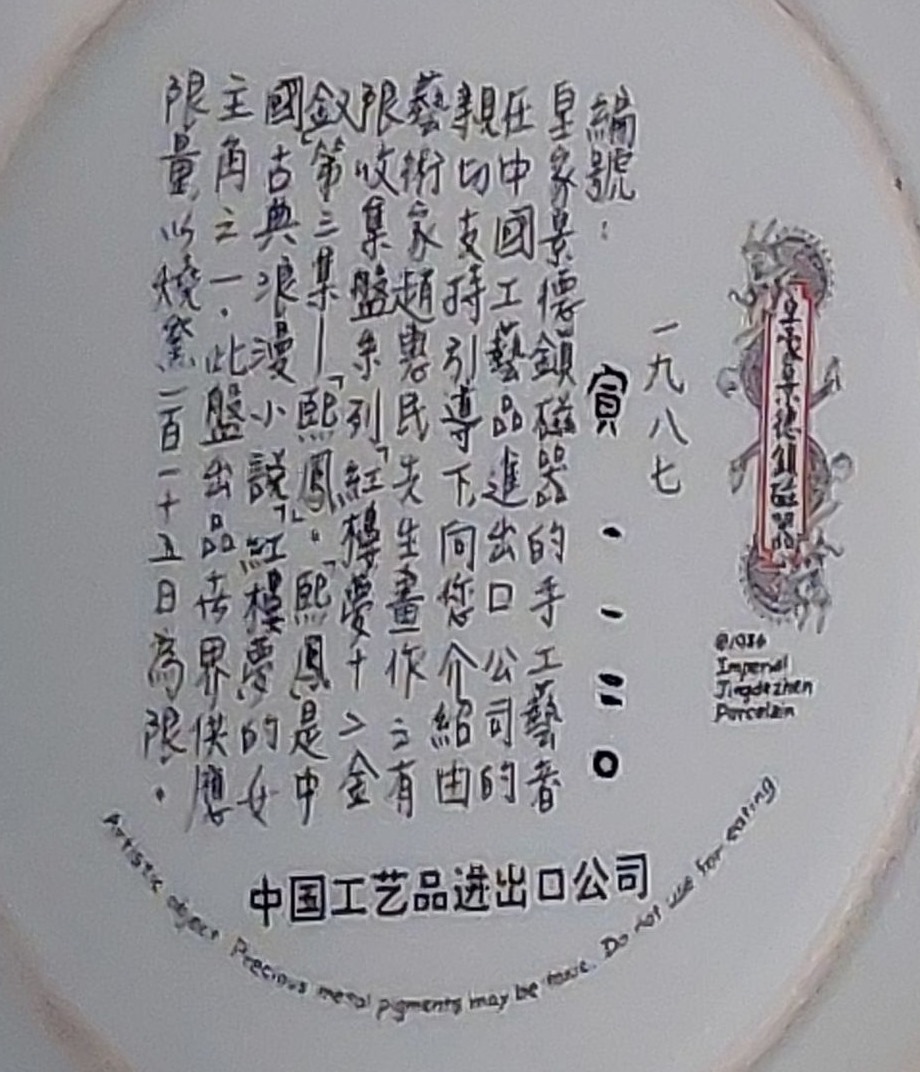 皇家景德鎮磁器
©1986
Imperial
Jingdezhen
Porcelain
一九八七
編號：寅一一二〇
皇家景德鎮磁器的手工藝者
在中國工藝品進出口公司的
親切支持引導下,向您介紹由
藝術家趙惠民先生畫作之有
限收集盤系列「紅樓夢十二金
釵」第三集—「熙鳳」。「熙鳳」是中
國古典浪漫小說「紅樓夢」的女
主角之一.此盤出品世界供應
限量以燒窯一百一十五日為限.
中国工艺品进出口公司
Artistic object Precious metal pigments may be toxic. Do not use for eating